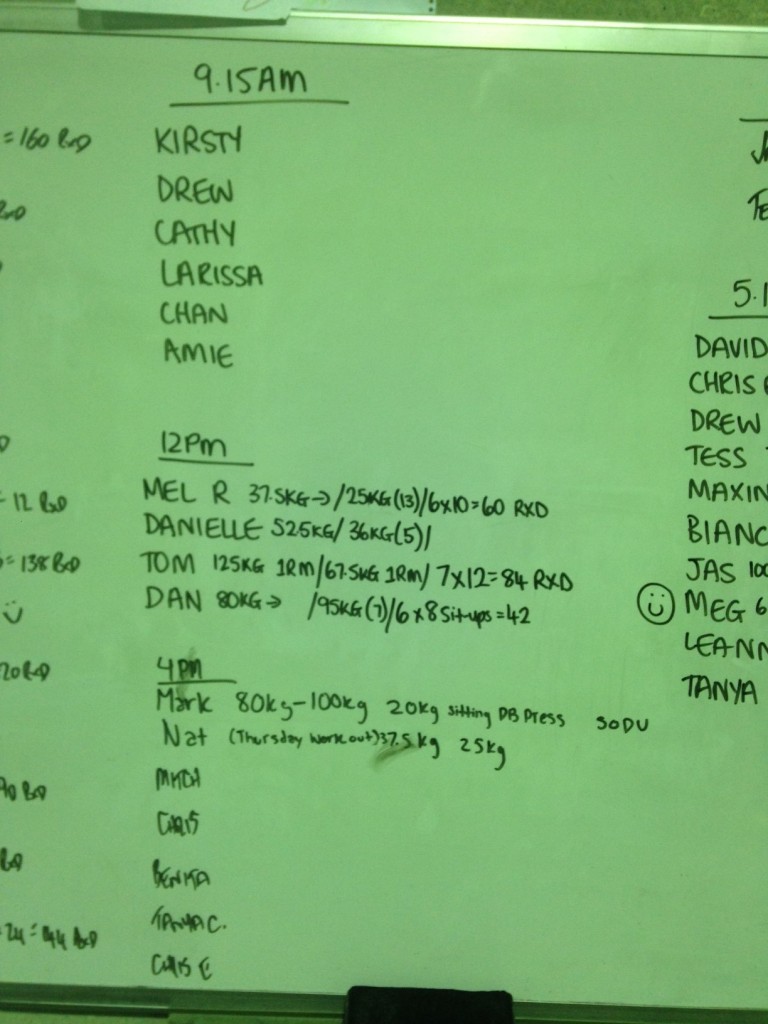 = 160 RxD
9.15AM
KIRSTY
DREW
CATHY
LARISSA
CHAN
AMIE
12PM
= 12 RxD
MEL R 37.5KG→/25KG(13)/6x10=60 RXD
DANIELLE 52.5KG/36KG(5)/
= 138 RxD
TOM 125KG 1RM/67.5KG 1RM/7x12=84 RXD
DAN 80KG→ /95KG(7)/6x8 Sit-ups=42
4PM
Mark 80kg-100kg 20kg sitting DB Press 50DU
Nat (Thursday workout) 37.5kg 25kg
MITCH
CHRIS
TANYA C.
CHRIS E
= 44 RxD
5.1
DAVID
CHRIS
DREW
TESS
MAXIN
BIANC
JAS 100
MEG 6
LEANN
TANYA